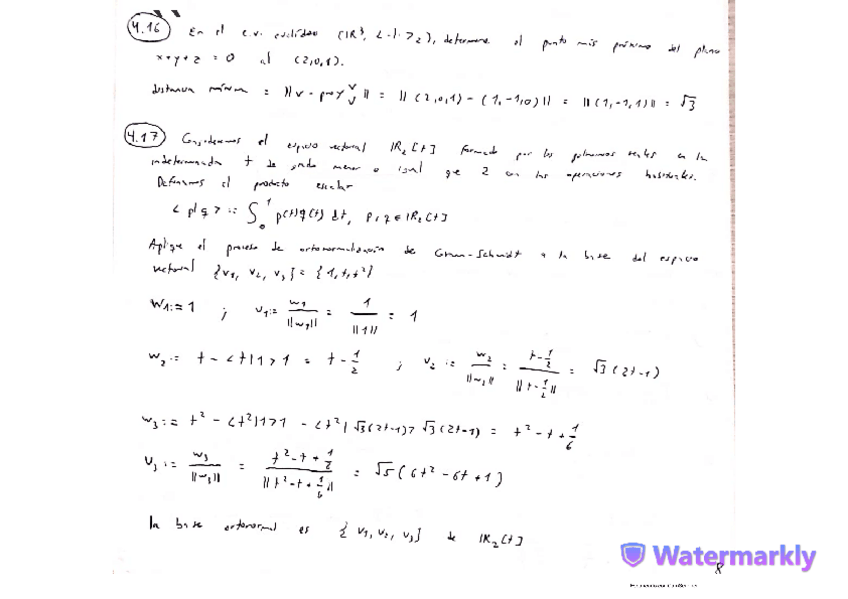 4.16 En el e.v. euclídeo (IR³, <·|·>₂), determine el punto más próximo del plano
x+y+z=0 al (2,0,1).
distancia mínima = ||v - proy_U^v|| = ||(2,0,1)-(1,-1,0)|| = ||(1,-1,1)|| = √3
4.17 Consideremos el espacio vectorial IR₂[t] formado por los polinomios reales en la
indeterminada t de grado menor o igual que 2 con las operaciones habituales.
Definimos el producto escalar
<p|q> := ∫₀¹ p(t)q(t) dt, p,q ∈ IR₂[t]
Aplique el proceso de ortonormalización de Gram-Schmidt a la base del espacio
vectorial {v₁, v₂, v₃} = {1,t,t²}
W₁:=1 ; v₁:= w₁/||w₁|| = 1/||1|| = 1
w₂:= t - <t|1>1 = t - 1/2 ; v₂:= w₂/||w₂|| = (t-1/2)/||t-1/2|| = √3(2t-1)
w₃:= t² - <t²|1>1 - <t²|√3(2t-1)>√3(2t-1) = t² - t + 1/6
v₃:= w₃/||w₃|| = (t²-t+1/2)/||t²-t+1/6|| = √5(6t²-6t+1)
la base ortonormal es {v₁, v₂, v₃} de IR₂[t]
Watermarkly
8